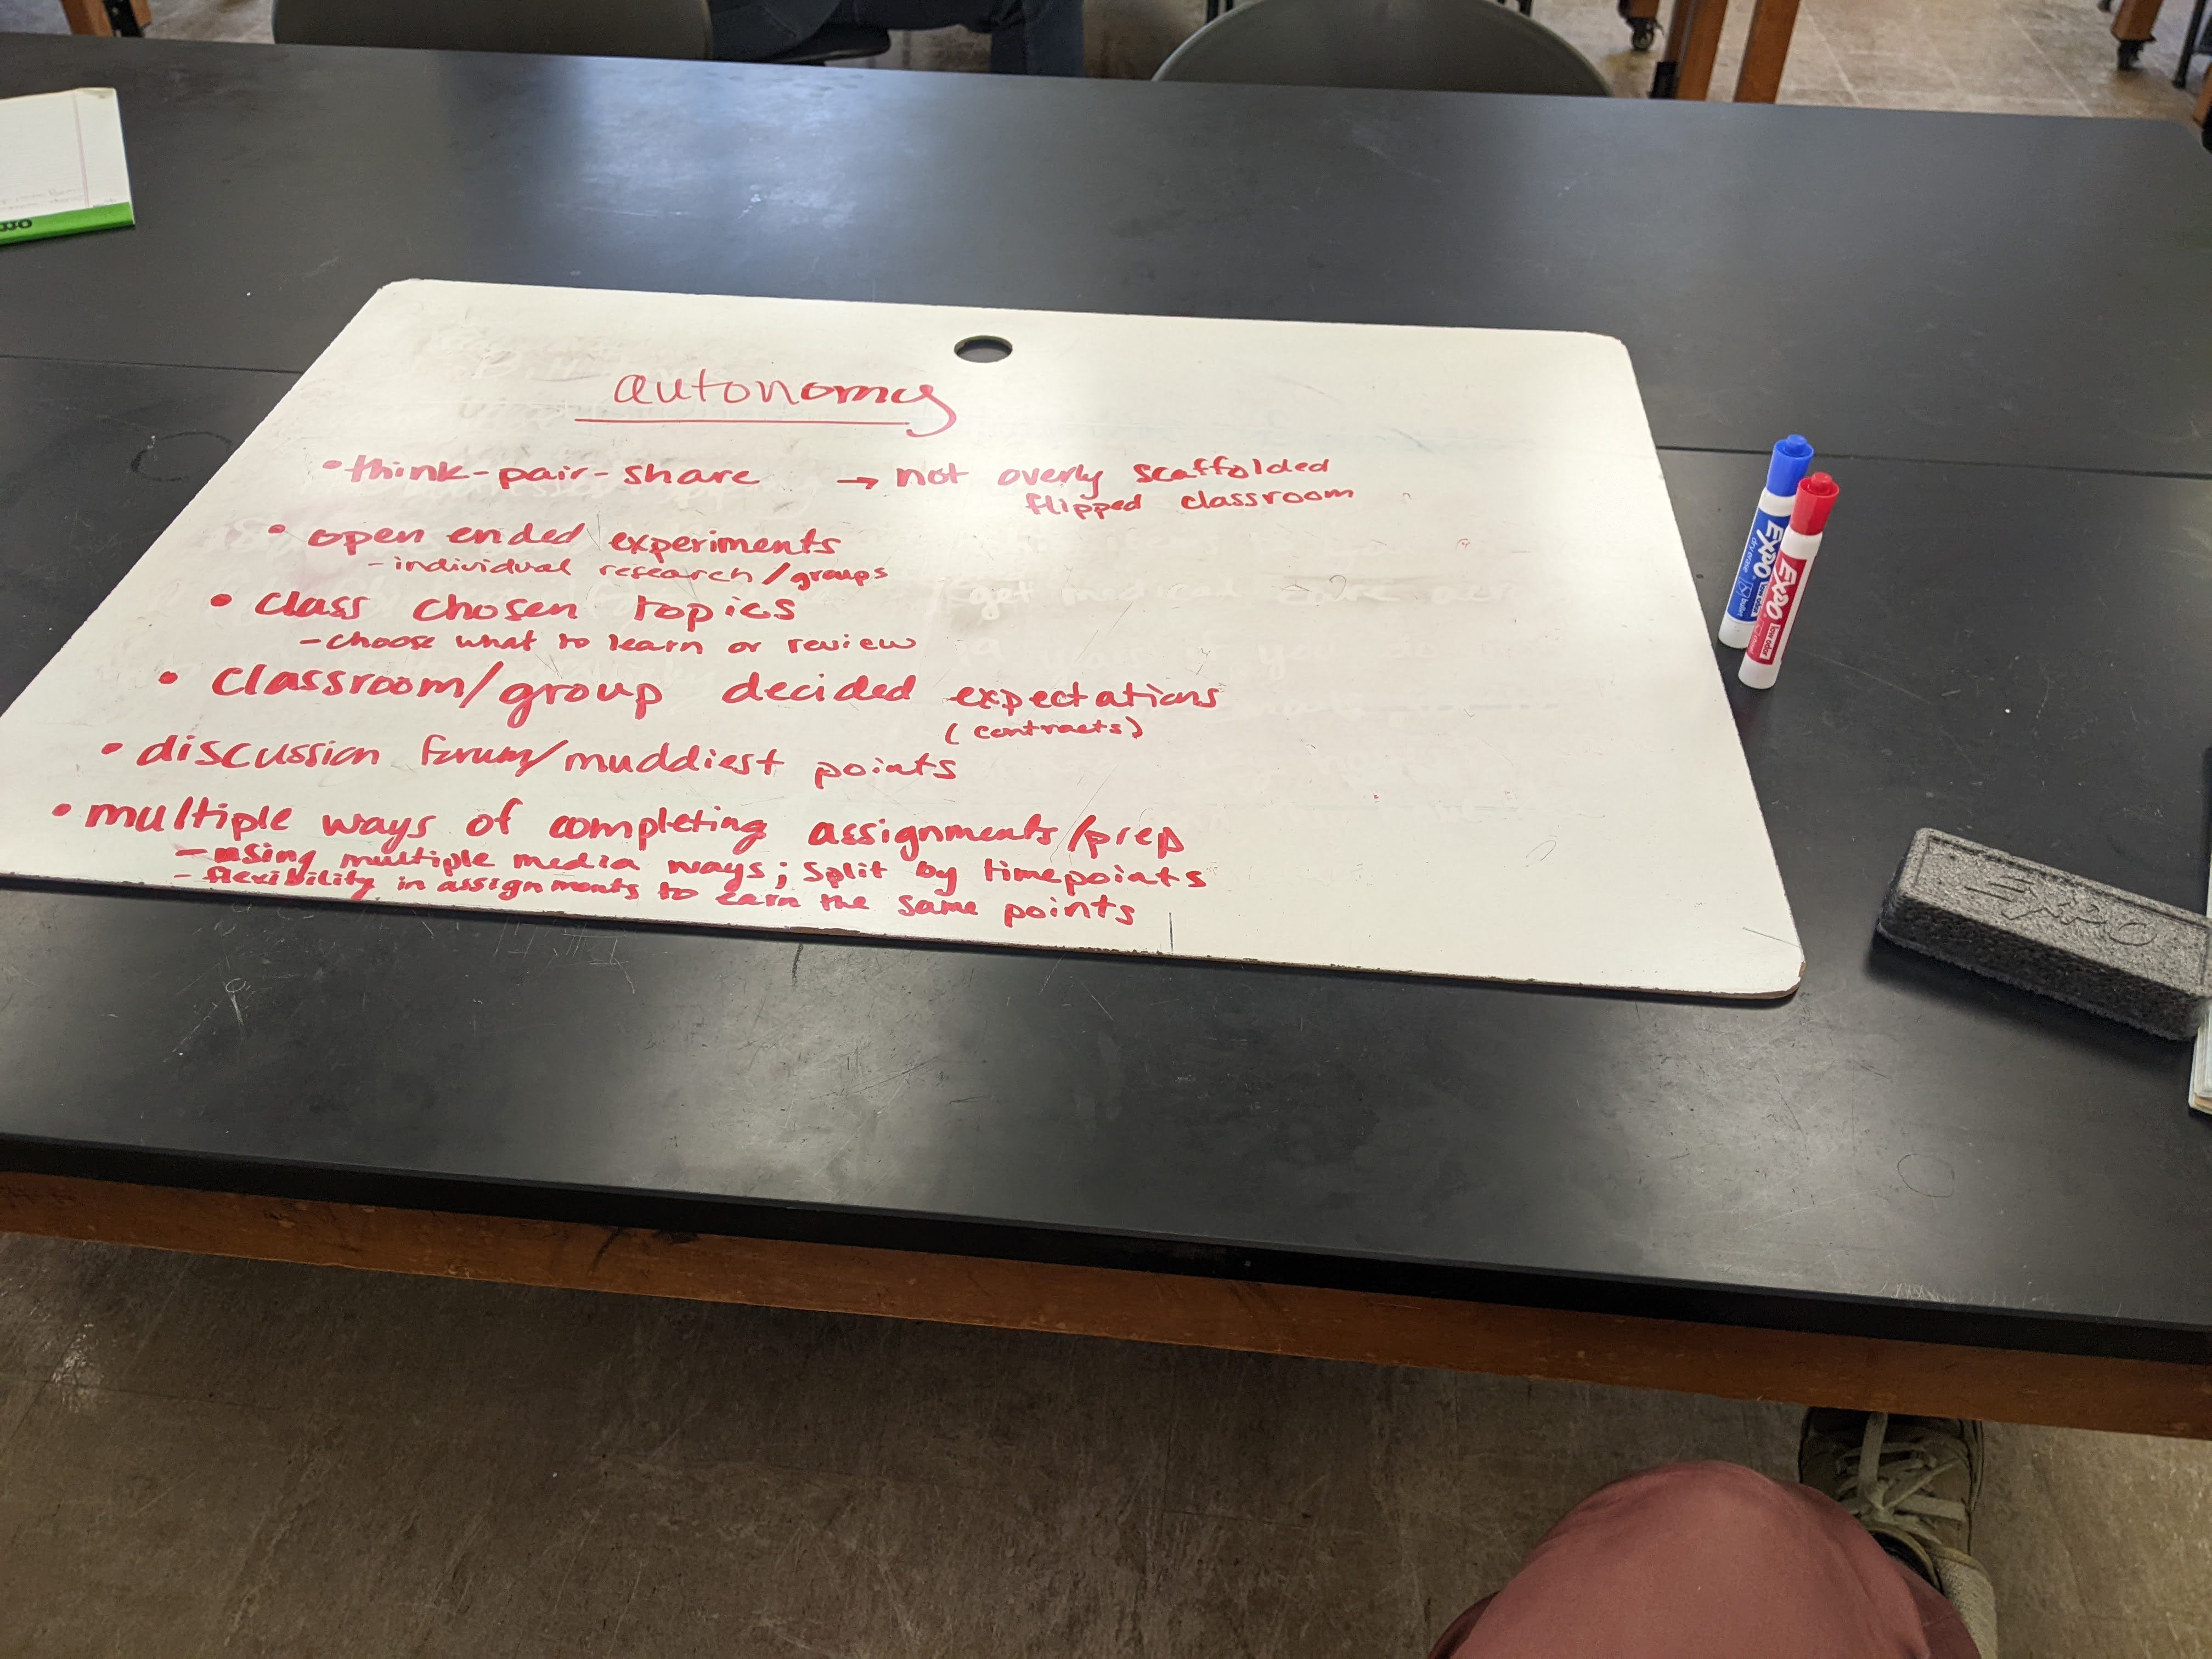 autonomy
• think-pair-share → not overly scaffolded
flipped classroom
• open ended experiments
- individual research/groups
• class chosen topics
- choose what to learn or review
• classroom/group decided expectations
(contracts)
• discussion forum/muddiest points
• multiple ways of completing assignments/prep
- using multiple media ways; split by timepoints
- flexibility in assignments to earn the same points
EXPO
EXPO
EXPO